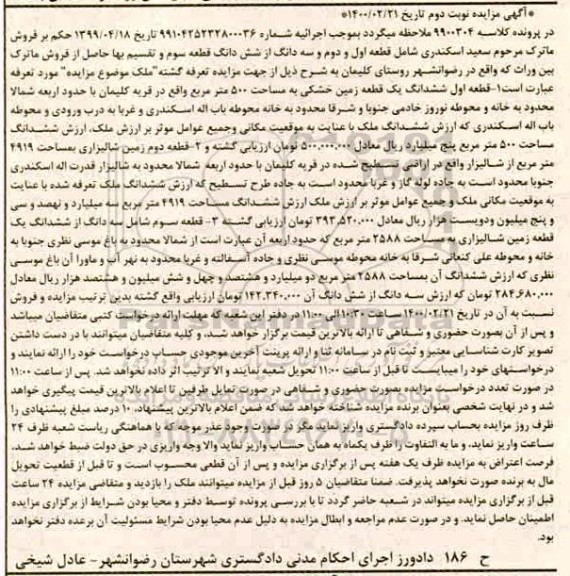 *آگهی مزایده نوبت دوم تاریخ ۱۴۰۰/۰۲/۲۱*
در پرونده کلاسه ۹۹۰۰۳۰۴ ملاحظه میگردد بموجب اجرائیه شماره ۹۹۱۰۴۲۵۲۳۲۸۰۰۰۳۶ تاریخ ۱۳۹۹/۰۴/۱۸ حکم بر فروش
ماترک مرحوم سعید اسکندری شامل قطعه اول و دوم و سه دانگ از شش دانگ قطعه سوم و تقسیم بها حاصل از فروش ماترک
بین وراث که واقع در رضوانشهر روستای کلیمان به شرح ذیل از جهت مزایده تعرفه گشته"ملک موضوع مزایده" مورد تعرفه
عبارت است۱-قطعه اول ششدانگ یک قطعه زمین خشکی به مساحت ۵۰۰ متر مربع واقع در قریه کلیمان با حدود اربعه شمالا
محدود به خانه و محوطه نوروز خادمی جنوبا و شرقا محدود به خانه محوطه باب اله اسکندری و غربا به درب ورودی و محوطه
باب اله اسکندری که ارزش ششدانگ ملک با عنایت به موقعیت مکانی وجمیع عوامل موثر بر ارزش ملک، ارزش ششدانگ
مساحت ۵۰۰ متر مربع پنج میلیارد ریال معادل ۵۰۰,۰۰۰,۰۰۰ تومان ارزیابی گشته و ۲-قطعه دوم زمین شالیزاری بمساحت ۴۹۱۹
متر مربع از شالیزار واقع در اراضی تسطیح شده در قریه کلیمان با حدود اربعه شمالا محدود به شالیزار قدرت اله اسکندری
جنوبا محدود است به جاده لوله گاز و غربا محدود است به جاده طرح تسطیح که ارزش ششدانگ ملک تعرفه شده با عنایت
به موقعیت مکانی ملک و جمیع عوامل موثر بر ارزش ملک ارزش ششدانگ مساحت ۴۹۱۹ متر مربع سه میلیارد و نهصد و سی
و پنج میلیون ودویست هزار ریال معادل ۳۹۳,۵۲۰,۰۰۰ تومان ارزیابی گشته ۳- قطعه سوم شامل سه دانگ از ششدانگ یک
قطعه زمین شالیزاری به مساحت ۲۵۸۸ متر مربع که حدود اربعه آن عبارت است از شمالا محدود به باغ موسی نظری جنوبا به
خانه و محوطه علی کنعانی شرقا به خانه محوطه موسی نظری و جاده آسفالته و غربا محدود به نهر آب و ماورا آن باغ موسی
نظری که ارزش ششدانگ آن بمساحت ۲۵۸۸ متر مربع دو میلیارد و هشتصد و چهل و شش میلیون و هشتصد هزار ریال معادل
۲۸۴,۶۸۰,۰۰۰ تومان که ارزش سه دانگ از شش دانگ آن ۱۴۲,۳۴۰,۰۰۰ تومان ارزیابی واقع گشته بدین ترتیب مزایده و فروش
نسبت به آن در تاریخ ۱۴۰۰/۰۲/۲۱ ساعت ۱۰:۳۰ الی ۱۱:۰۰ در دفتر این شعبه که مهلت ارائه درخواست کتبی متقاضیان میباشد
و پس از آن بصورت حضوری و شفاهی تا ارائه بالاترین قیمت برگزار خواهد شد، و کلیه متقاضیان میتوانند با در دست داشتن
تصویر کارت شناسایی معتبر و ثبت نام در سامانه ثنا و ارائه پرینت آخرین موجودی حساب درخواست خود را ارائه نمایند و
درخواستهای خود را میبایست تا قبل از ساعت ۱۱:۰۰ تحویل شعبه نمایند و الا ترتیب اثر داده نخواهد شد. پس از ساعت ۱۱:۰۰
در صورت تعدد درخواست مزایده بصورت حضوری و شفاهی در صورت تمایل طرفین تا اعلام بالاترین قیمت پیگیری خواهد
شد و در نهایت شخصی بعنوان برنده مزایده شناخته خواهد شد که ضمن اعلام بالاترین پیشنهاد، ۱۰ درصد مبلغ پیشنهادی را
ظرف روز مزایده بحساب سپرده دادگستری واریز نماید مگر در صورت وجود عذر موجه که با هماهنگی ریاست شعبه ظرف ۲۴
ساعت واریز نماید، و ما به التفاوت را ظرف یکماه به همان حساب واریز نماید والا وجه واریزی در حق دولت ضبط خواهد شد،
فرصت اعتراض به مزایده ظرف یک هفته پس از برگزاری مزایده و پس از آن قطعی محسوب است و تا قبل از قطعیت تحویل
مال به برنده صورت نخواهد پذیرفت. ضمنا متقاضیان ۵ روز قبل از مزایده میتوانند ملک را بازدید و متقاضی مزایده ۲۴ ساعت
قبل از برگزاری مزایده میتواند در شعبه حاضر گردد تا با بررسی پرونده توسط دفتر و محیا بودن شرایط از برگزاری مزایده
اطمینان حاصل نماید. و در صورت عدم مراجعه و ابطال مزایده به دلیل عدم محیا بودن شرایط مسئولیت آن برعده دفتر نخواهد
بود.
ح ۱۸۶ دادورز اجرای احکام مدنی دادگستری شهرستان رضوانشهر- عادل شیخی